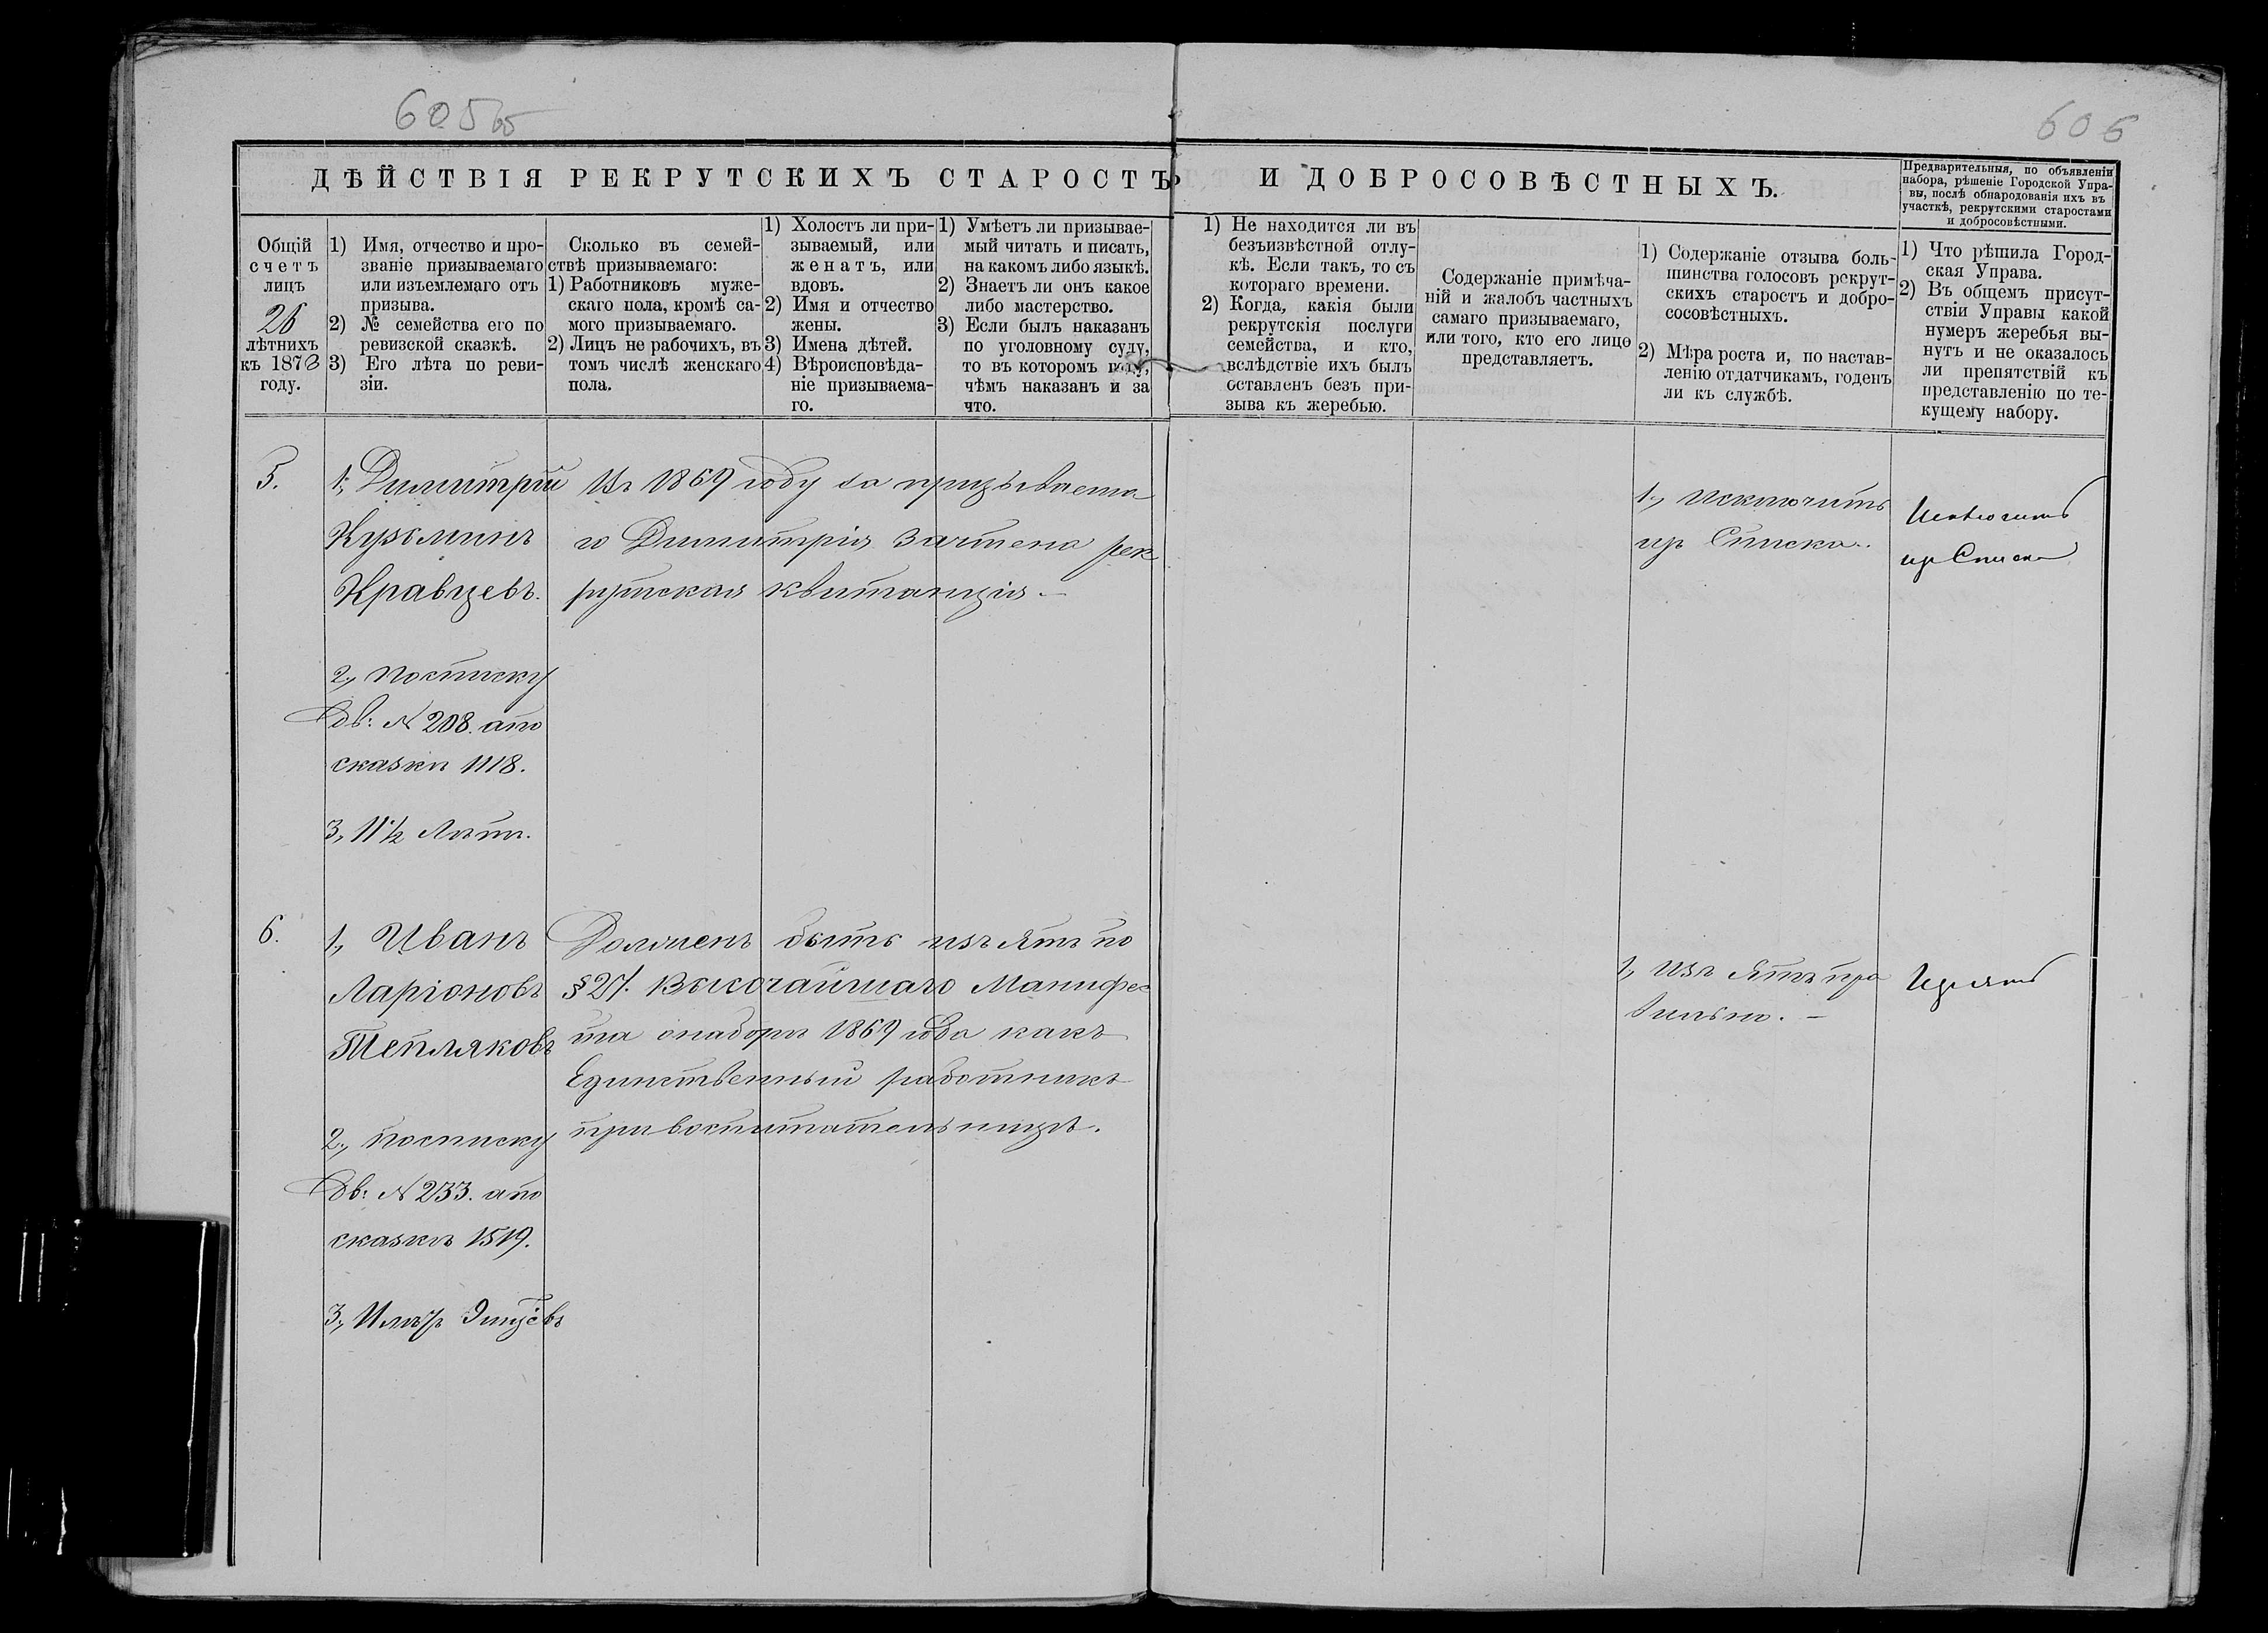 605 об
606
ДѢЙСТВІЯ РЕКРУТСКИХЪ СТАРОСТЪ И ДОБРОСОВѢСТНЫХЪ.
Предварительныя, по объявленіи
набора, рѣшеніе Городской Упра-
вы, послѣ обнародованія ихъ въ
участкѣ, рекрутскими старостами
и добросовѣстными.
Общій
счетъ
лицъ
26
лѣтнихъ
къ 1873
году.
1) Имя, отчество и про-
званіе призываемаго
или изъемлемаго отъ
призыва.
2) № семейства его по
ревизской сказкѣ.
3) Его лѣта по реви-
зіи.
Сколько въ семей-
ствѣ призываемаго:
1) Работниковъ муже-
скаго пола, кромѣ са-
мого призываемаго.
2) Лицъ не рабочихъ, въ
томъ числѣ женскаго
пола.
1) Холостъ ли при-
зываемый, или
женатъ, или
вдовъ.
2) Имя и отчество
жены.
3) Имена дѣтей.
4) Вѣроисповѣда-
ніе призываема-
го.
1) Умѣетъ ли призывае-
мый читать и писать,
на какомъ либо языкѣ.
2) Знаетъ ли онъ какое
либо мастерство.
3) Если былъ наказанъ
по уголовному суду,
то въ которомъ году,
чѣмъ наказанъ и за
что.
1) Не находится ли въ
безъизвѣстной отлу-
кѣ. Если такъ, то съ
котораго времени.
2) Когда, какія были
рекрутскія послуги
семейства, и кто,
вслѣдствіе ихъ былъ
оставленъ безъ при-
зыва къ жеребью.
Содержаніе примѣча-
ній и жалобъ частныхъ
самаго призываемаго,
или того, кто его лицо
представляетъ.
1) Содержаніе отзыва боль-
шинства голосовъ рекрут-
скихъ старостъ и добро-
сосовѣстныхъ.
2) Мѣра роста и, по настав-
ленію отдатчикамъ, годенъ
ли къ службѣ.
1) Что рѣшила Город-
ская Управа.
2) Въ общемъ присут-
ствіи Управы какой
нумеръ жеребья вы-
нутъ и не оказалось
ли препятствій къ
представленію по те-
кущему набору.
5.
1., Димитрій
Кузьминъ
Кравцевъ.
2., посписку
Дв: № 208. апо
сказкѣ 1118.
3, 11½ Лѣтъ.
Въ 1869 году за призываема
го Димитрія Зачтена рек
рутская квитанція. —
1., Исключить
изъ Списка.
Исключить
изъ Списка
6.
1., Иванъ
Ларіоновъ
Тепляковъ
2., посписку
Дв: № 233. апо
сказкѣ 1519.
Долженъ быть изъятъ по
§ 27. Высочайшаго Манифес
та онаборѣ 1869 года какъ
Единственный работникъ
при воспитательницѣ.
1., Изъ Ятъ пра
вильно. —
Изъять